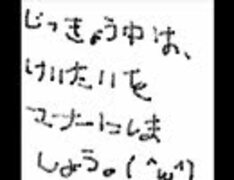 じっきょう中は、
けいたいを
マナーにしま
しょう。(^ω^)